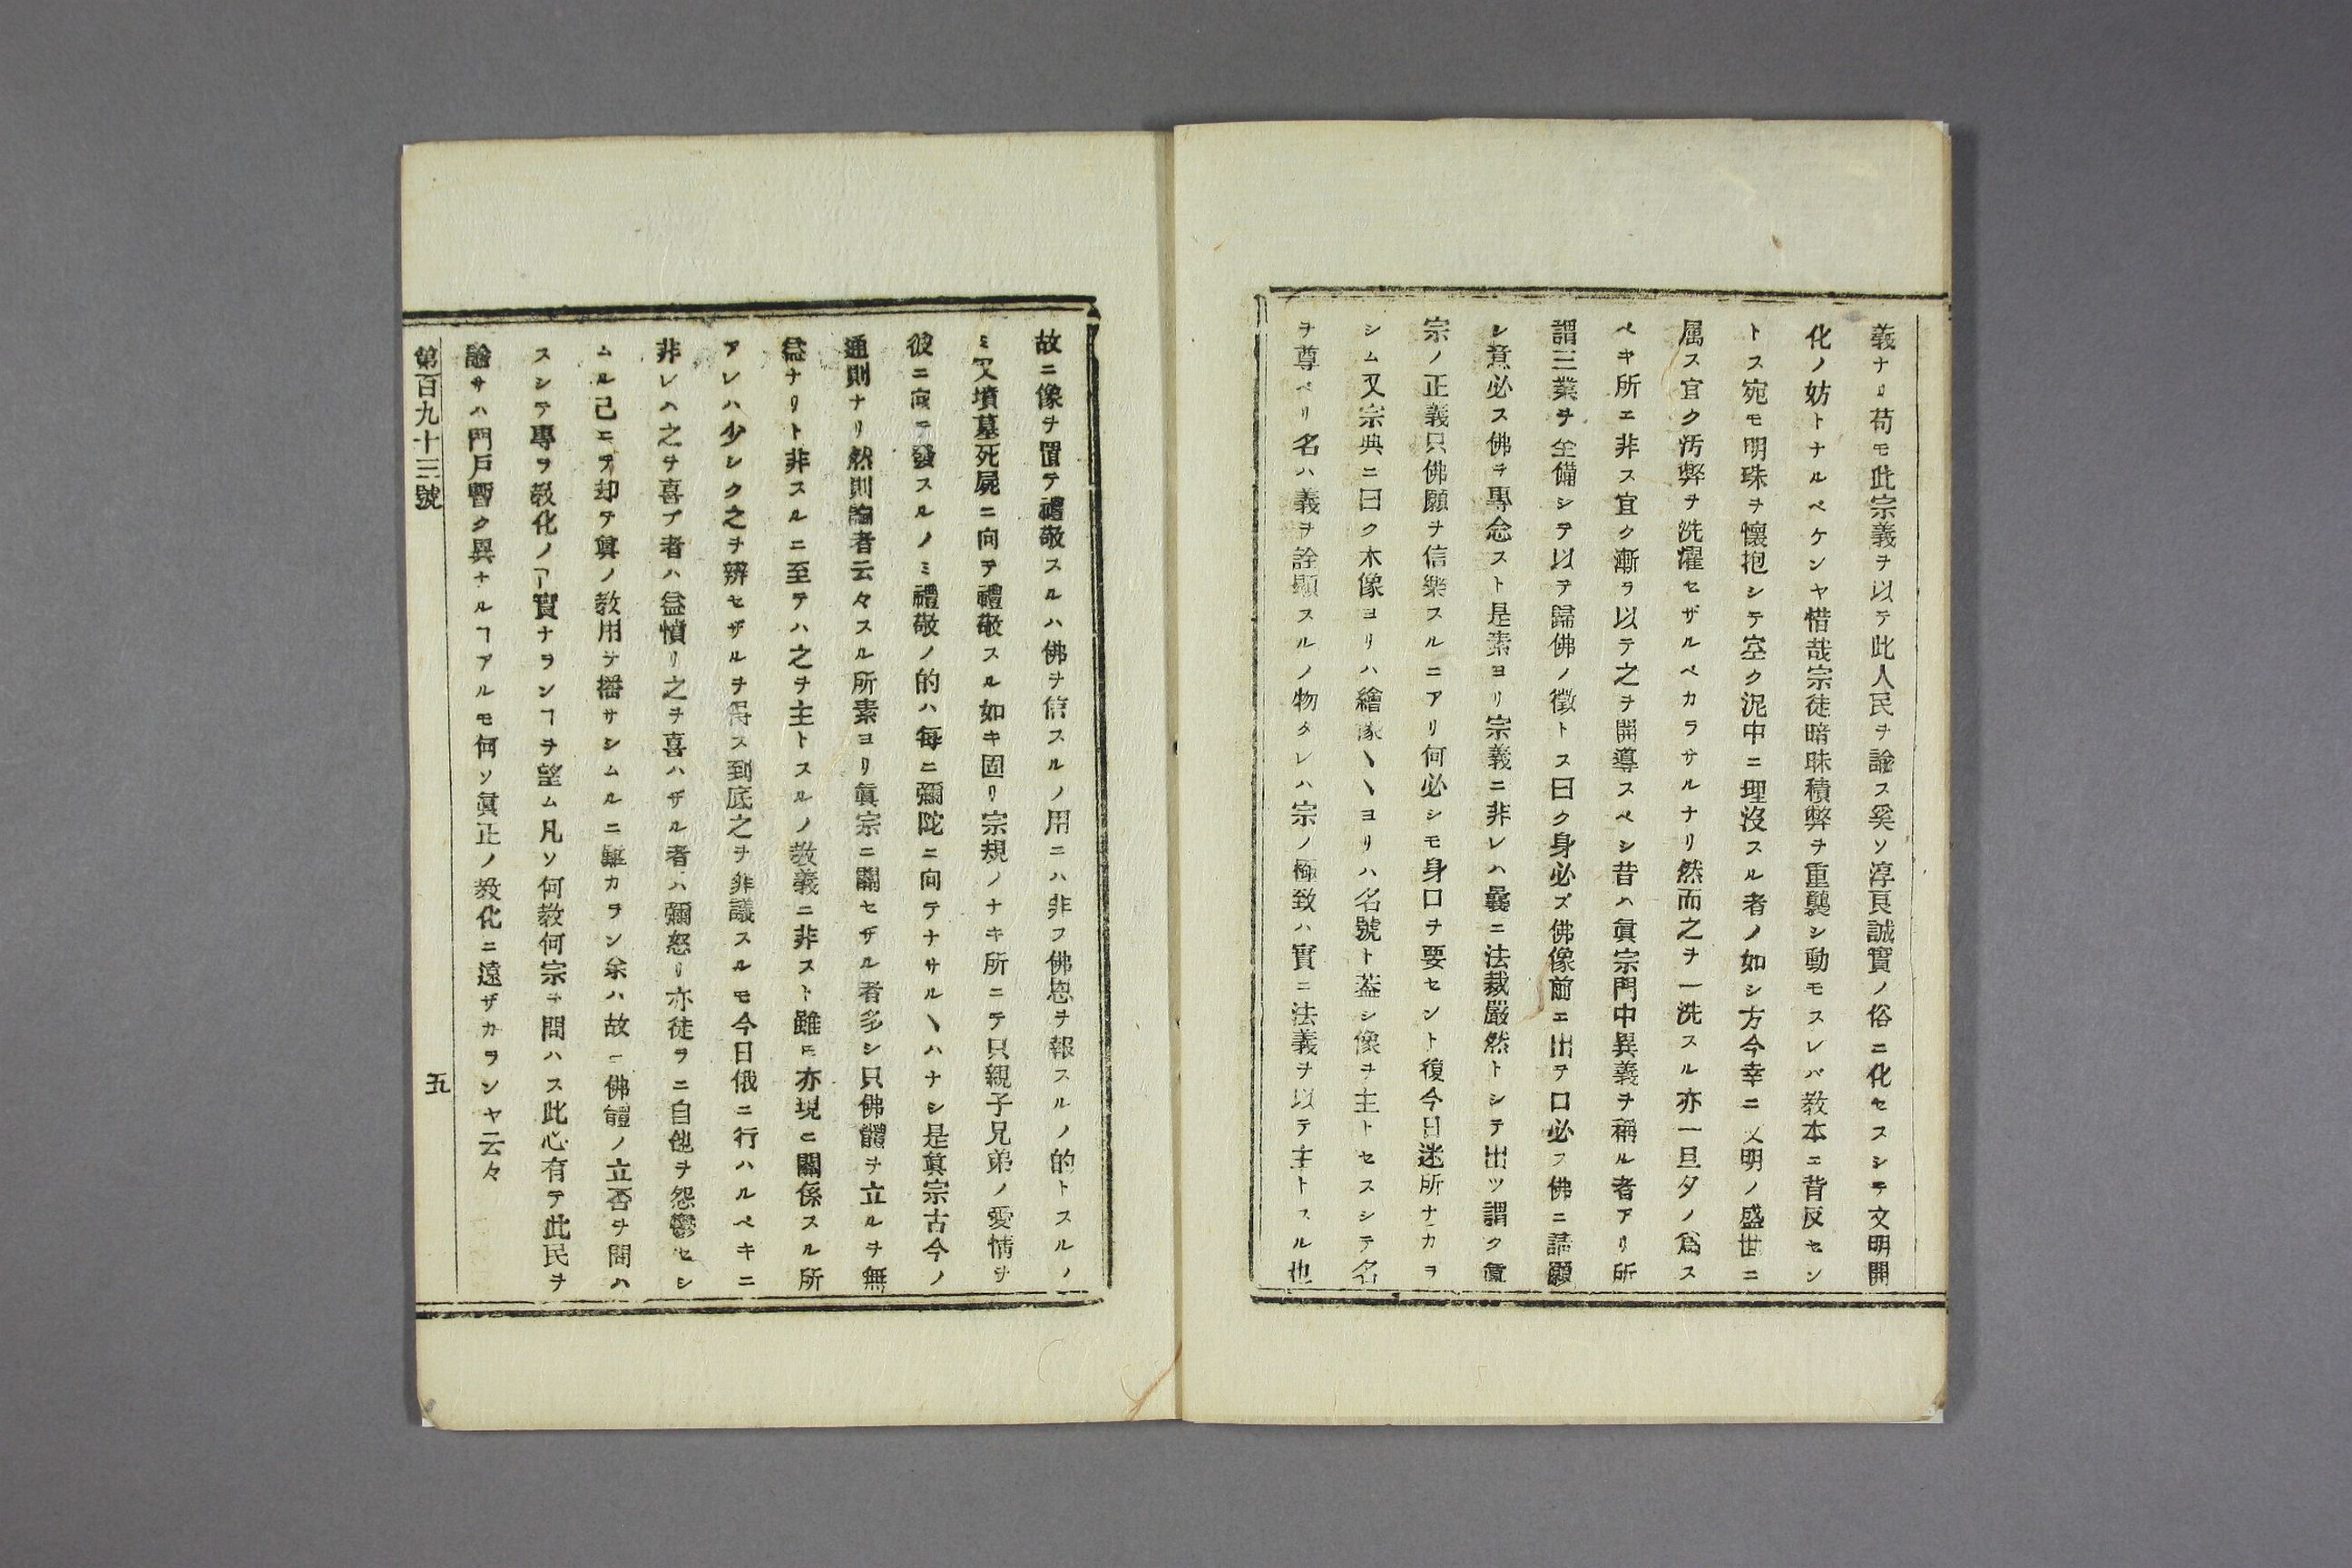 義ナリ苟モ此宗義ヲ以テ此人民ヲ諭ス奚ソ淳良誠實ノ俗ニ化セスシテ文明開
化ノ妨トナルベケンヤ惜哉宗徒暗昧積弊ヲ重襲シ動モスレバ教本ニ背反セン
トス宛モ明珠ヲ懷抱シテ空ク泥中ニ埋沒スル者ノ如シ方今幸ニ文明ノ盛世ニ
属ス宜ク汚弊ヲ洗濯セザルベカラサルナリ然而之ヲ一洗スル亦一旦夕ノ爲ス
ベキ所ニ非ス宜ク漸ヲ以テ之ヲ開導スベシ昔ハ眞宗門中異義ヲ稱ル者アリ所
謂三業ヲ全備シテ以テ歸佛ノ徴トス曰ク身必ズ佛像前ニ出テ口必ス佛ニ請願
シ意必ス佛ヲ專念スト是素ヨリ宗義ニ非レハ曩ニ法裁嚴然トシテ出ツ謂ク眞
宗ノ正義只佛願ヲ信樂スルニアリ何必シモ身口ヲ要セント復今日迷所ナカラ
シム又宗典ニ曰ク木像ヨリハ繪像〵〵ヨリハ名號ト蓋シ像ヲ主トセスシテ名
ヲ尊ベリ名ハ義ヲ詮顯スルノ物タレハ宗ノ極致ハ實ニ法義ヲ以テ主トスル也
故ニ像ヲ置テ禮敬スルハ佛ヲ信スルノ用ニハ非フ佛恩ヲ報スルノ的トスルノ
ミ又墳墓死屍ニ向テ禮敬スル如キ固リ宗規ノナキ所ニテ只親子兄弟ノ愛情ヲ
彼ニ向テ發スルノミ禮敬ノ的ハ毎ニ彌陀ニ向テナサル〵ハナシ是眞宗古今ノ
通則ナリ然則論者云々スル所素ヨリ眞宗ニ關セザル者多シ只佛體ヲ立ルヲ無
益ナリト非スルニ至テハ之ヲ主トスルノ教義ニ非スト雖モ亦現ニ關係スル所
アレハ少シク之ヲ辨セザルヲ得ス到底之ヲ非議スルモ今日俄ニ行ハルベキニ
非レハ之ヲ喜ブ者ハ益憤リ之ヲ喜ハザル者ハ彌怒リ亦徒ヲニ自他ヲ怨鬱セシ
ムル己ニヲ却テ眞ノ教用ヲ播サシムルニ難カラン余ハ故ニ佛體ノ立否ヲ問ハ
スシテ專ラ教化ノヿ實ナランヿヲ望ム凡ソ何教何宗ヲ問ハス此心有テ此民ヲ
諭サハ門戸暫ク異ナルヿアルモ何ソ眞正ノ教化ニ遠ザカランヤ云々
第百九十三號　五